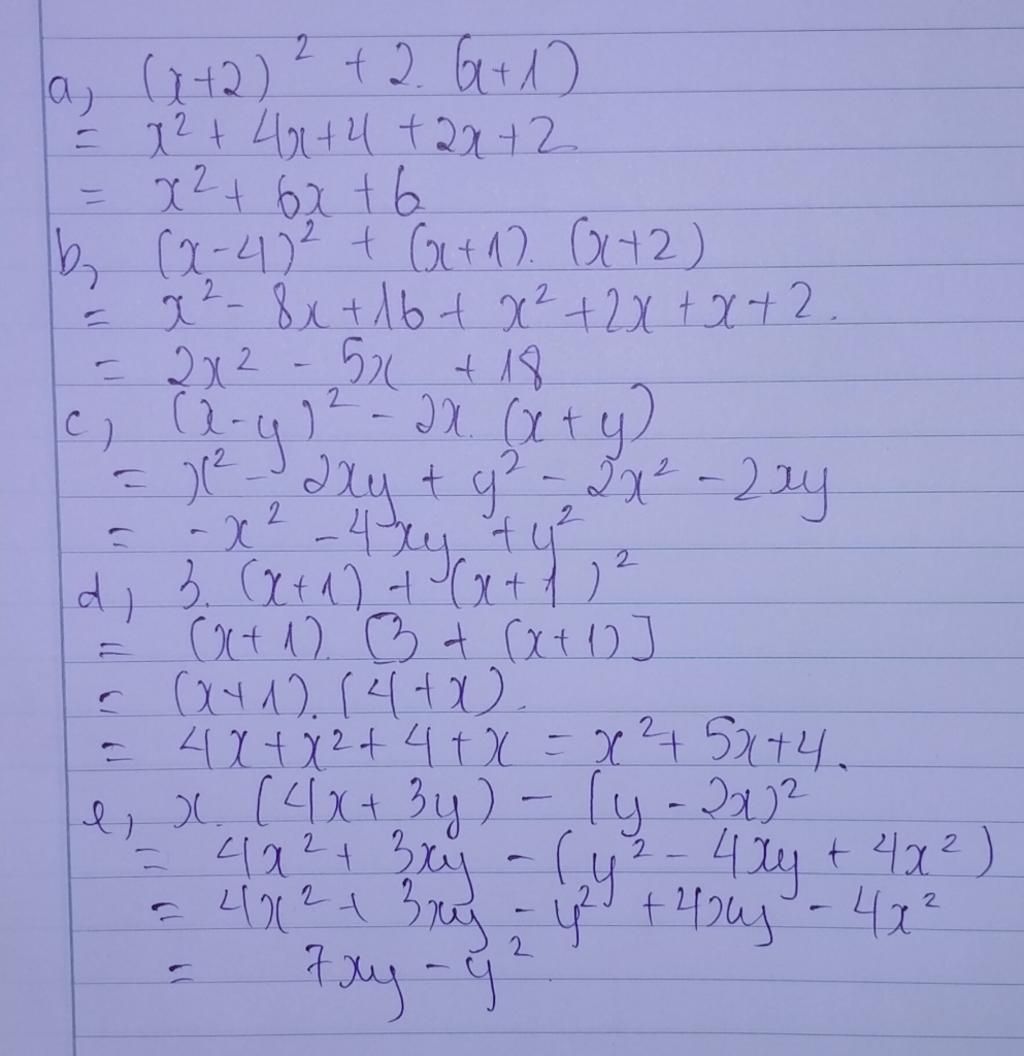 a, (x+2)² + 2. (x+1)
= x² + 4x+4 + 2x+2
= x² + 6x + 6
b, (x-4)² + (x+1). (x+2)
= x² - 8x + 16 + x² + 2x + x + 2.
= 2x² - 5x + 18
c, (x-y)² - 2x. (x+y)
= x² - 2xy + y² - 2x² - 2xy
= -x² - 4xy + y²
d, 3. (x+1) + (x+1)²
= (x+1). [3 + (x+1)]
= (x+1). (4+x).
= 4x + x² + 4 + x = x² + 5x + 4.
e, x. (4x + 3y) - (y - 2x)²
= 4x² + 3xy - (y² - 4xy + 4x²)
= 4x² + 3xy - y² + 4xy - 4x²
= 7xy - y²